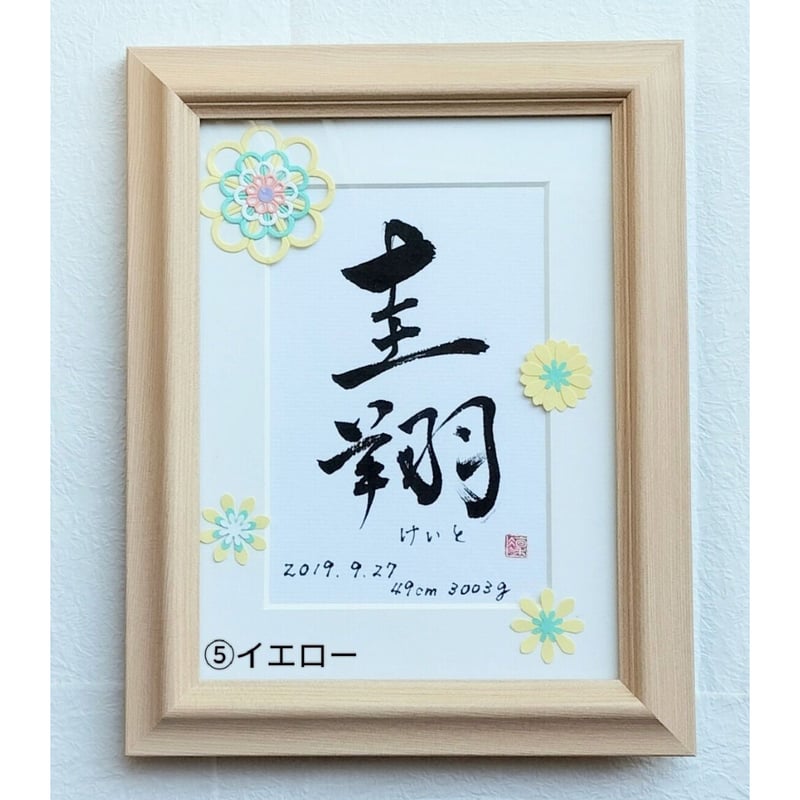 圭翔
けいと
2019.9.27
49cm 3003g
⑤イエロー